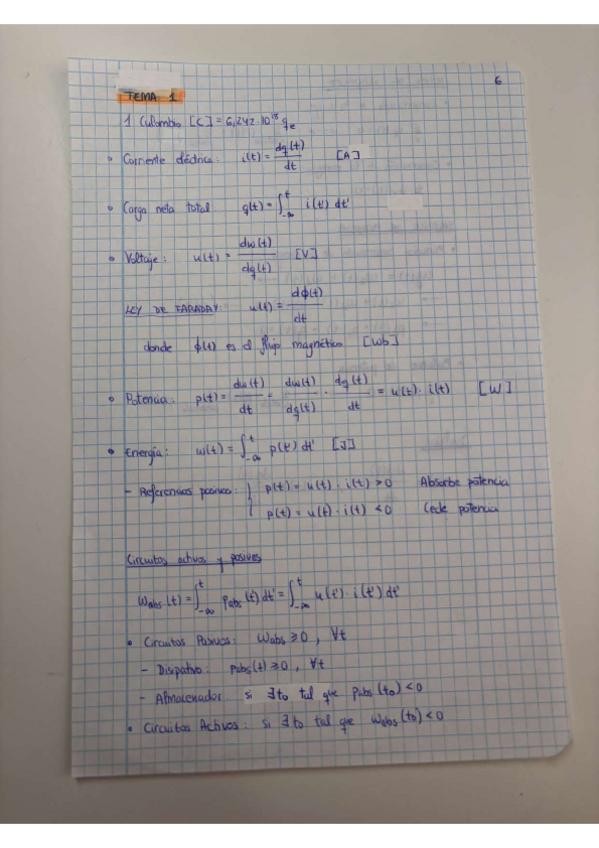 6
TEMA 1
1 Culombio [C] = 6,242·10¹⁸ qe
• Corriente eléctrica: i(t) = dq(t)/dt [A]
• Carga neta total q(t) = ∫_{-∞}^{t} i(t') dt'
• Voltaje: u(t) = dw(t)/dq(t) [V]
LEY DE FARADAY: u(t) = dϕ(t)/dt
donde ϕ(t) es el flujo magnético [Wb]
• Potencia: p(t) = dw(t)/dt = dw(t)/dq(t) · dq(t)/dt = u(t) · i(t) [W]
• Energía: w(t) = ∫_{-∞}^{t} p(t') dt' [J]
- Referencias pasivas: { p(t) = u(t) · i(t) > 0 Absorbe potencia
p(t) = u(t) · i(t) < 0 Cede potencia
Circuitos activos y pasivos
Wabs (t) = ∫_{-∞}^{t} Pabs (t') dt' = ∫_{-∞}^{t} u(t') · i(t') dt'
• Circuitos Pasivos: Wabs ≥ 0 , ∀t
- Disipativo: pabs (t) ≥ 0 , ∀t
- Almacenador: si ∃to tal que pabs (to) < 0
• Circuitos Activos: si ∃to tal que Wabs (to) < 0